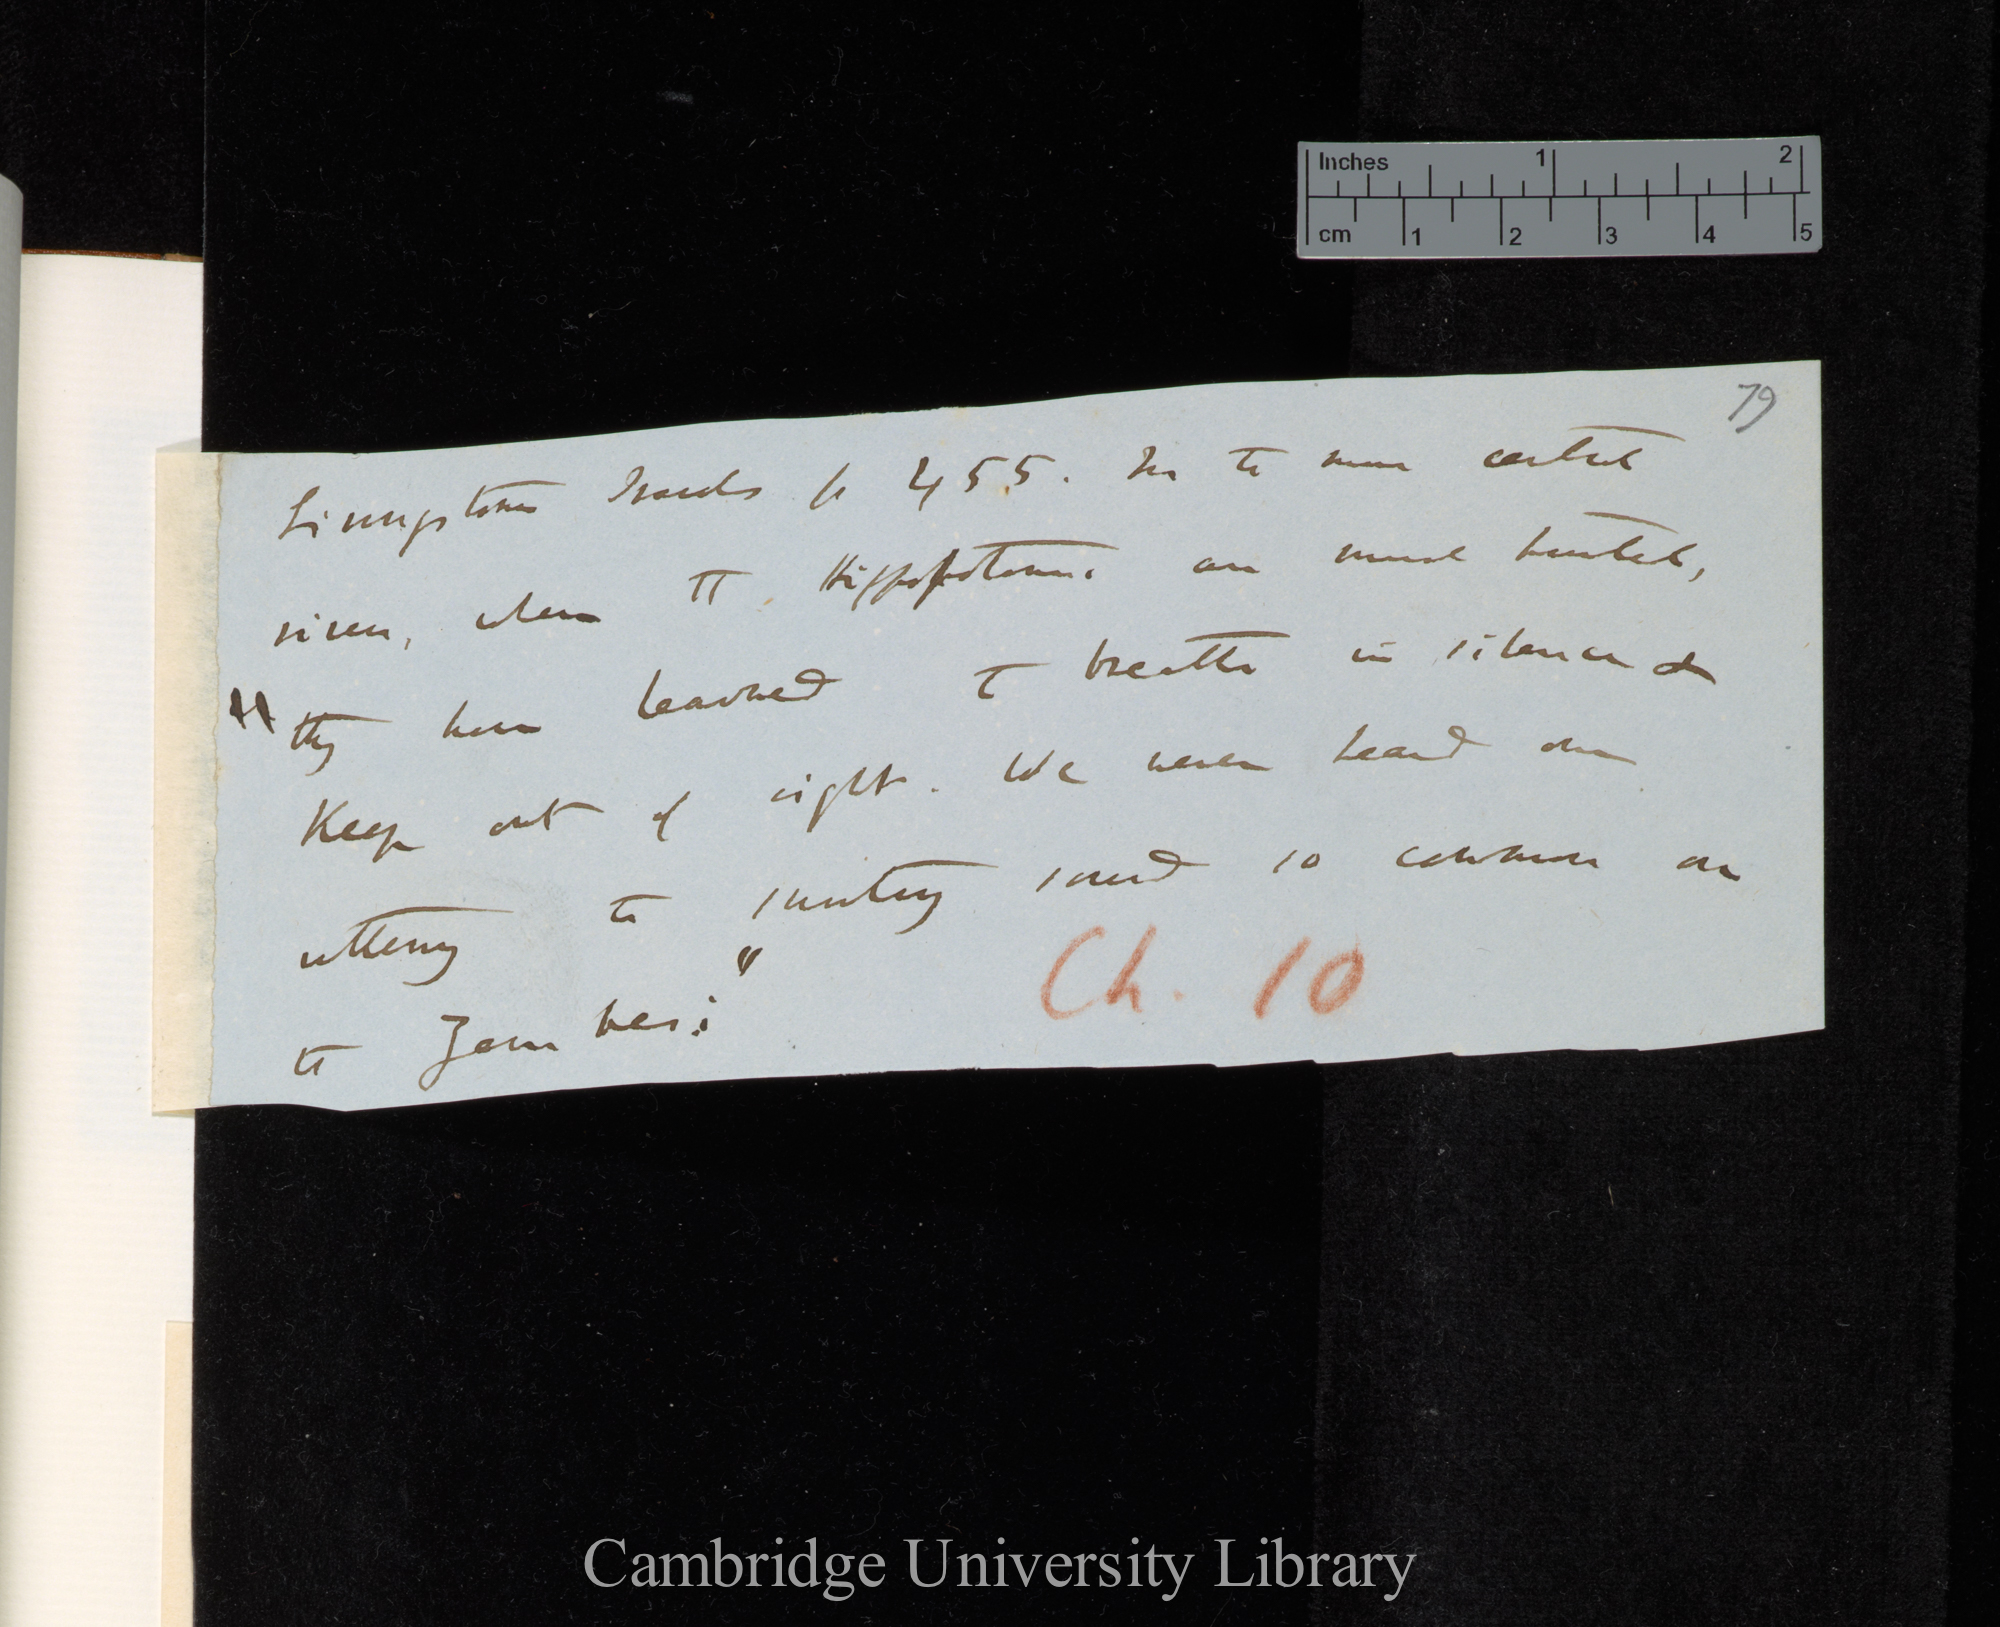 79
Livingstone Travels p 455. In the more central
rivers, where the Hippopotami are much hunted,
"they have learned to breathe in silence &
Keep out of sight. We never heard one
uttering the snorting sound so common on
the Zambesi"
Ch. 10
Inches 1 2
cm 1 2 3 4 5
Cambridge University Library